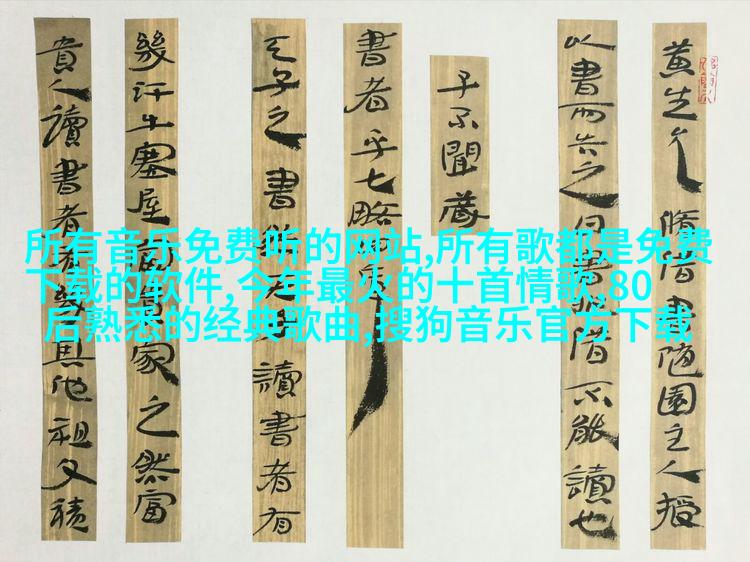 所有音乐免费听的网站,所有歌都是免费
下载的软件,今年最火的十首情歌,80
后熟悉的经典歌曲,搜狗音乐官方下载
黄生允脩借書随園主人授
以書而告之曰書非借不能讀也
子不聞藏
書者乎七略
天子之書然天子讀書者有
幾汗牛塞屋富貴家之然富
貴人讀書者有幾其他祖父積